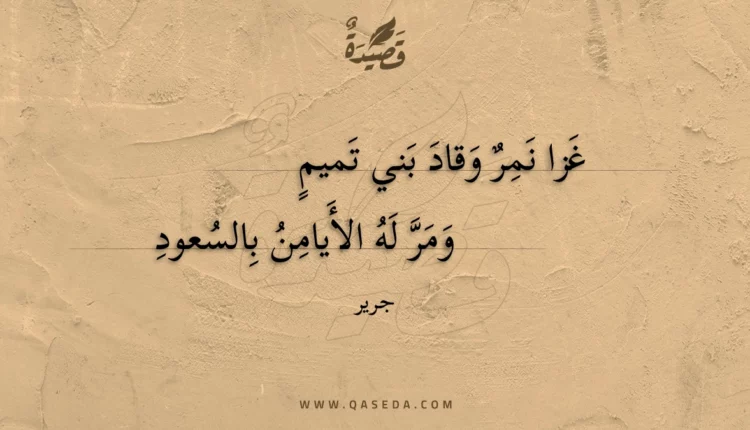 قَصِيْدَةٌ
غَزا نَمِرٌ وَقادَ بَني تَميمٍ
وَمَرَّ لَهُ الأَيامِنُ بِالسُعودِ
جرير
WWW.QASEDA.COM